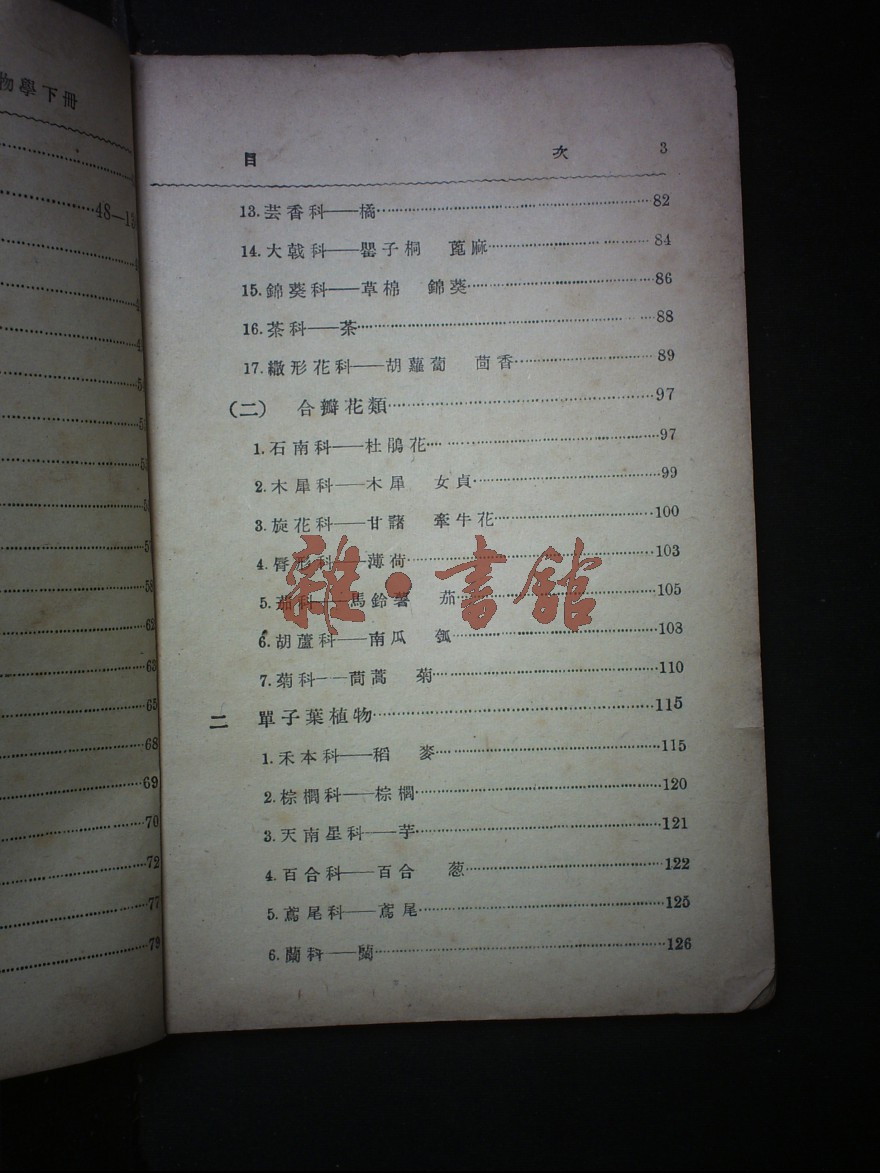 物學下冊
48—1
62
63
65
68
69
70
72
77
79
目 次 3
13. 芸香科——橘 82
14. 大戟科——罌子桐 蓖麻 84
15. 錦葵科——草棉 錦葵 86
16. 茶科——茶 88
17. 繖形花科——胡蘿蔔 茴香 89
(二) 合瓣花類 97
1. 石南科——杜鵑花 97
2. 木犀科——木犀 女貞 99
3. 旋花科——甘藷 牽牛花 100
4. 脣形科——薄荷 103
5. 茄科——馬鈴薯 茄 105
6. 胡蘆科——南瓜 瓠 108
7. 菊科——茼蒿 菊 110
二 單子葉植物 115
1. 禾本科——稻 麥 115
2. 棕櫚科——棕櫚 120
3. 天南星科——芋 121
4. 百合科——百合 葱 122
5. 鳶尾科——鳶尾 125
6. 蘭科——蘭 126
雜·書館